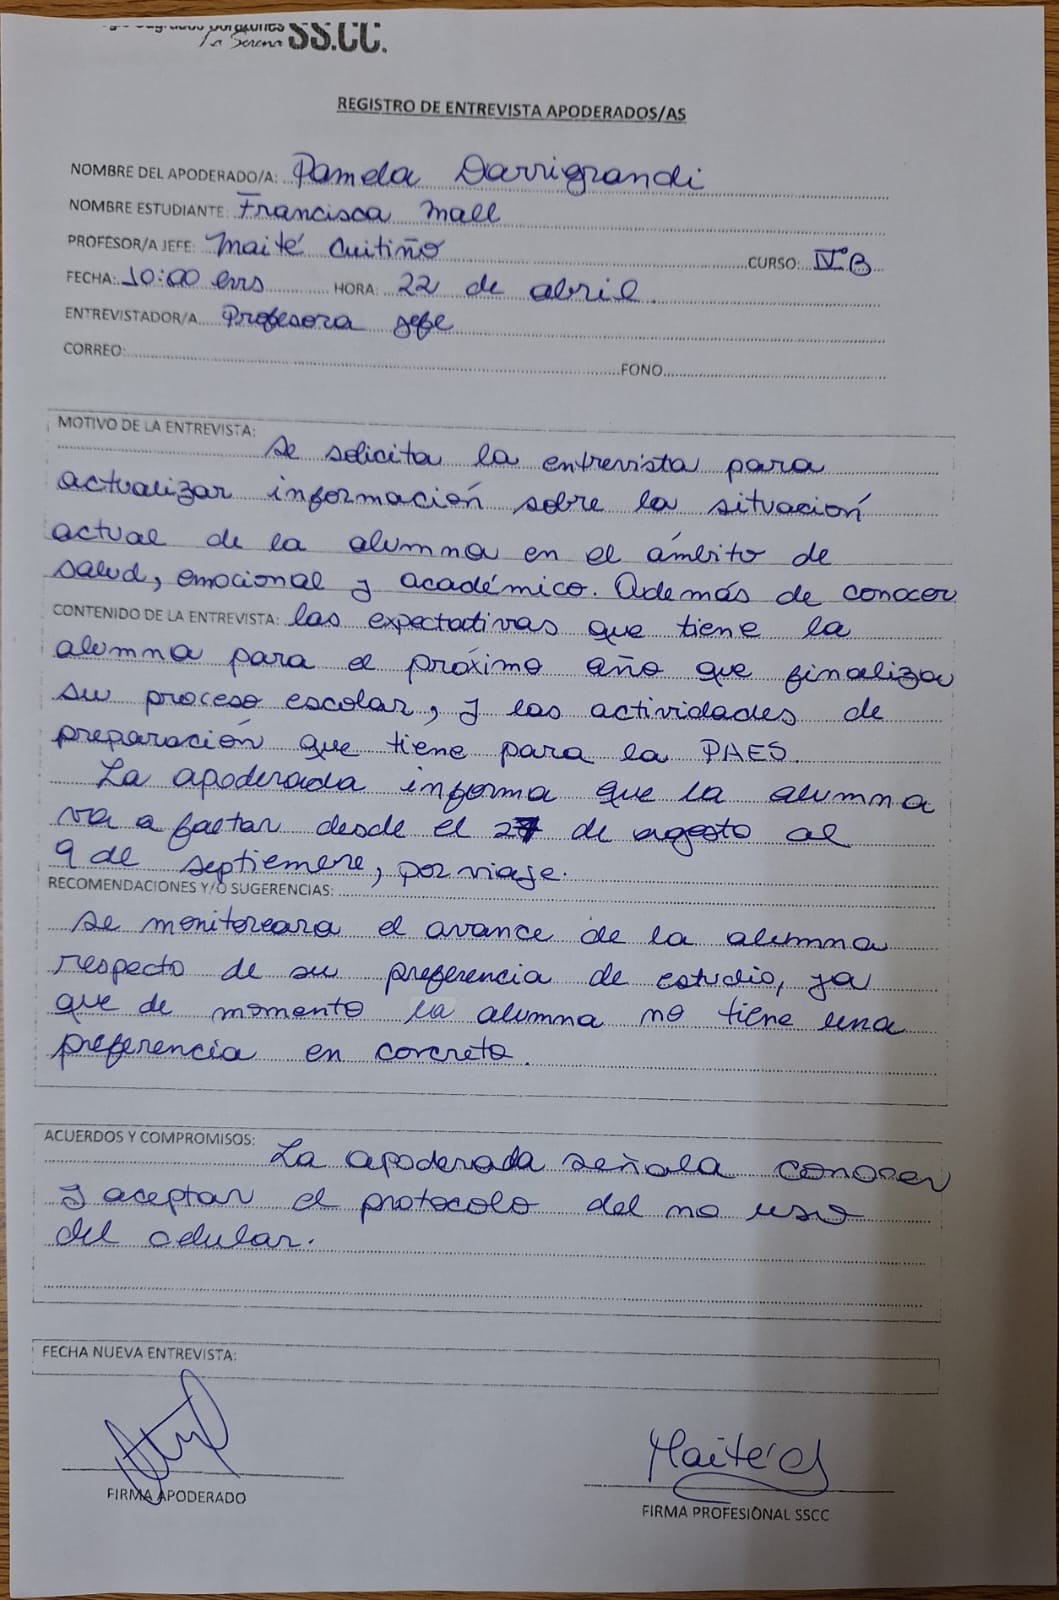 Sagrados Corazones
La Serena SS.CC.
REGISTRO DE ENTREVISTA APODERADOS/AS
NOMBRE DEL APODERADO/A: Pamela Darrigrandi
NOMBRE ESTUDIANTE: Francisca Mall
PROFESOR/A JEFE: Maité Cuitiño CURSO: IV°B
FECHA: 10:00 hrs HORA: 22 de abril.
ENTREVISTADOR/A Profesora jefe
CORREO: FONO
MOTIVO DE LA ENTREVISTA:
Se solicita la entrevista para
actualizar información sobre la situación
actual de la alumna en el ámbito de
salud, emocional y académico. Además de conocer
CONTENIDO DE LA ENTREVISTA: las expectativas que tiene la
alumna para el próximo año que finaliza
su proceso escolar, y las actividades de
preparación que tiene para la PAES.
La apoderada informa que la alumna
va a faltar desde el 27 de agosto al
9 de septiembre, por viaje.
RECOMENDACIONES Y/O SUGERENCIAS:
Se monitoreara el avance de la alumna
respecto de su preferencia de estudio, ya
que de momento la alumna no tiene una
preferencia en concreto.
ACUERDOS Y COMPROMISOS:
La apoderada señala conocer
y aceptar el protocolo del no uso
del celular.
FECHA NUEVA ENTREVISTA:
Maité C
FIRMA APODERADO
FIRMA PROFESIONAL SSCC